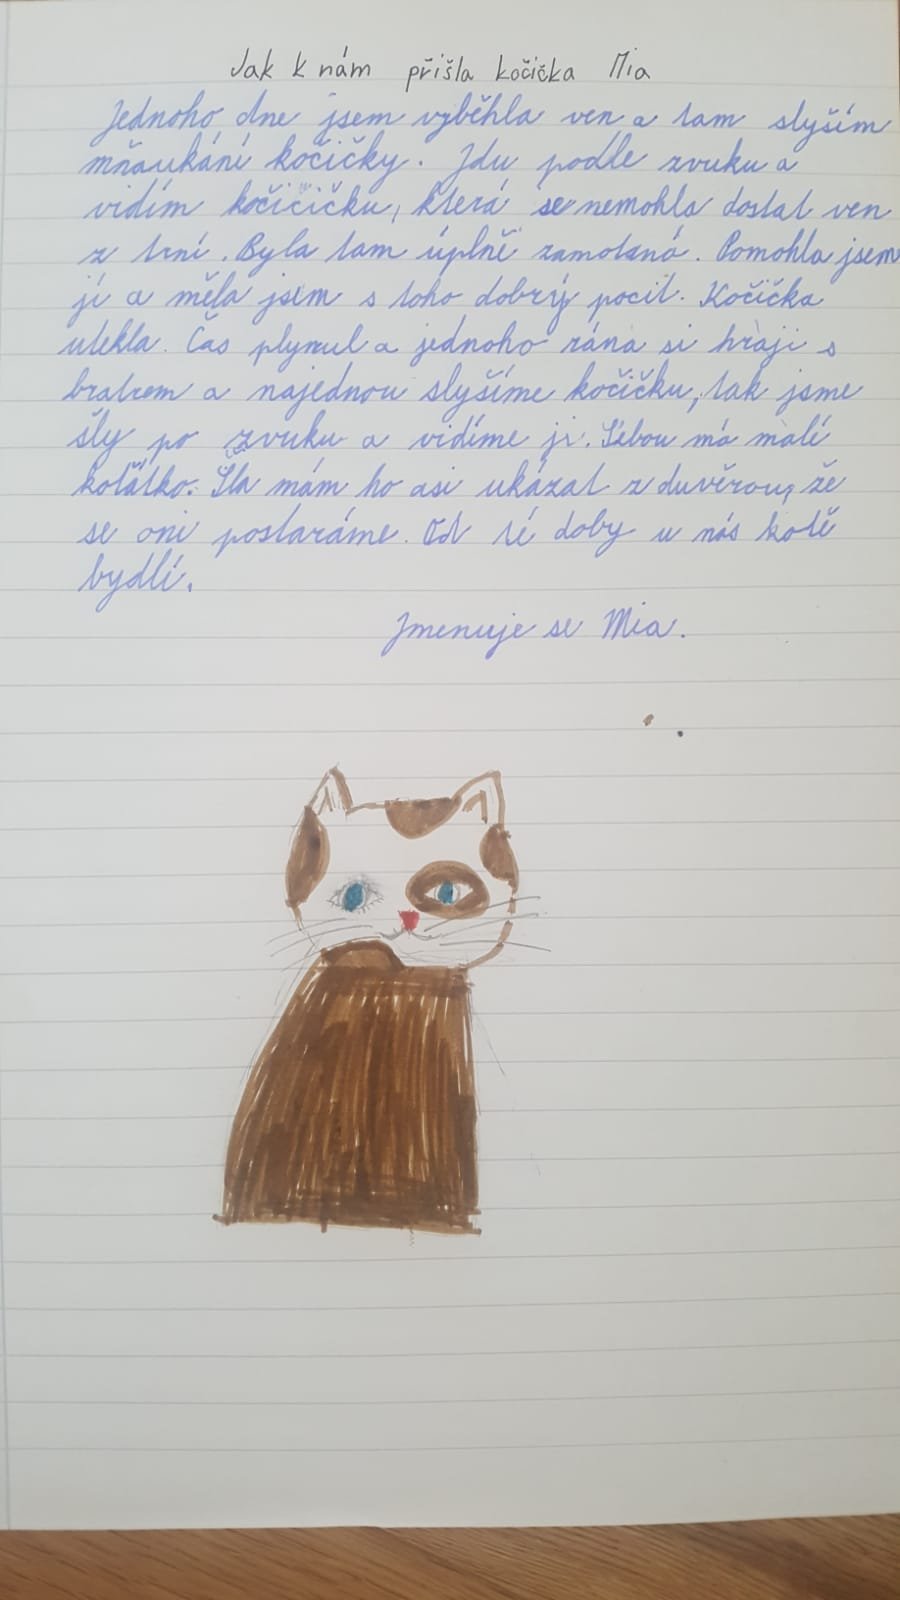 Jak k nám přišla kočička Mia
Jednoho dne jsem vyběhla ven a tam slyším
mňaukání kočičky. Jdu podle zvuku a
vidím kočičičku, která se nemohla dostat ven
z trní. Byla tam úplně zamotaná. Pomohla jsem
jí a měla jsem s toho dobrý pocit. Kočička
utekla. Čas plynul a jednoho rána si hraji s
bratrem a najednou slyšíme kočičku, tak jsme
šly po zvuku a vidíme ji. Sebou má malí
koťátko. Šla mám ho asi ukázat z duvěrou, že
se oni postaráme. Od té doby u nás kotě
bydlí.
Jmenuje se Mia.